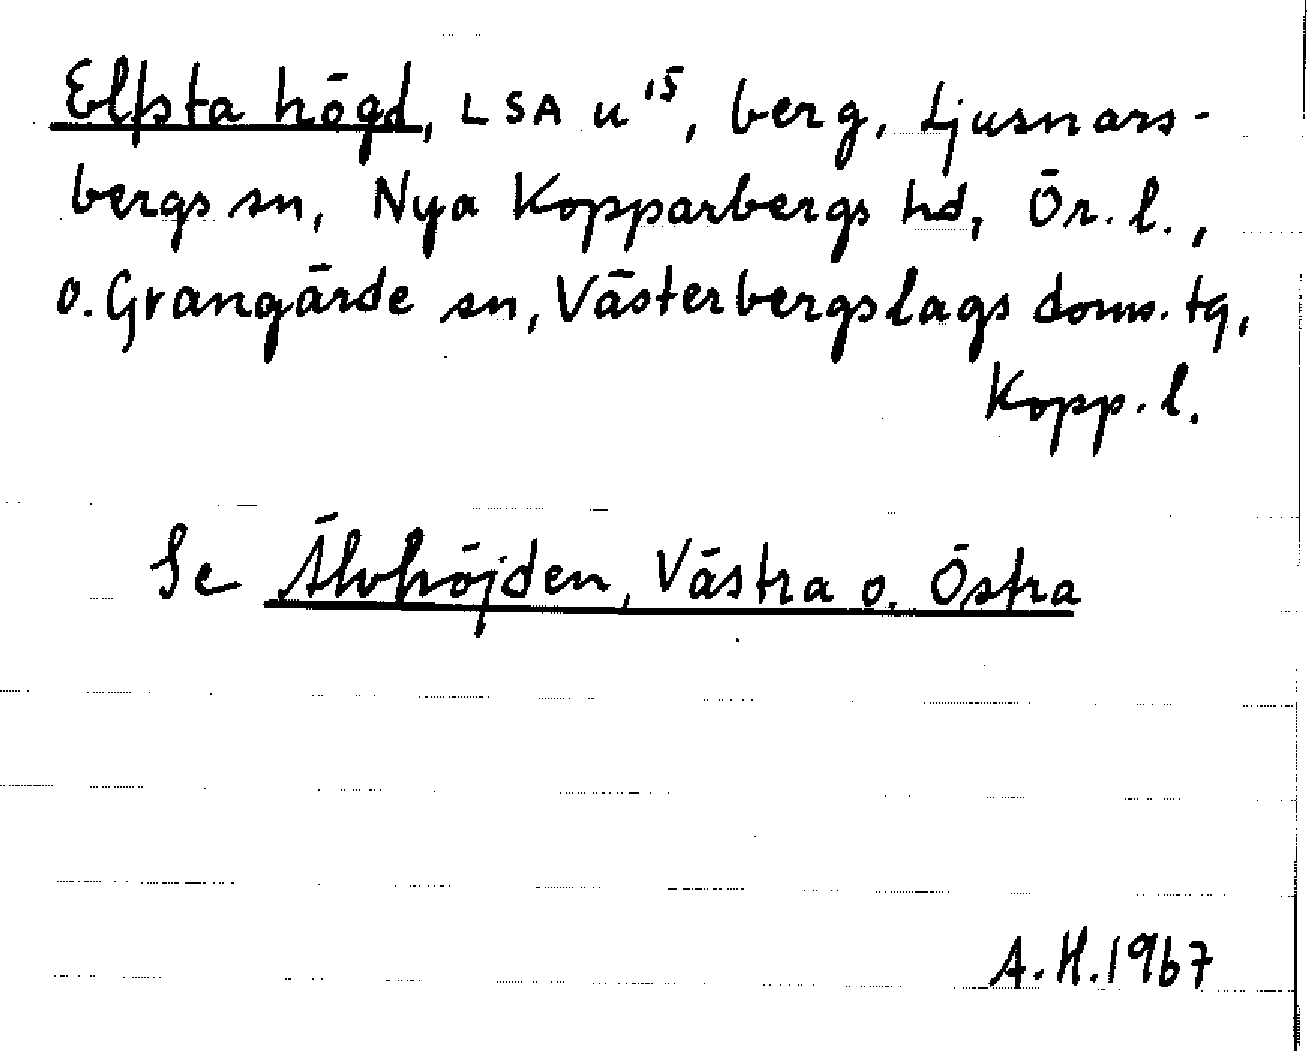 Elfsta högd, LSA u¹⁵, berg, Ljusnars-
bergs sn, Nya Kopparbergs hd, Ör. l.,
o. Grangärde sn, Västerbergslags doms. tg,
Kopp. l.
Se Älvhöjden, Västra o. Östra
A. H. 1967